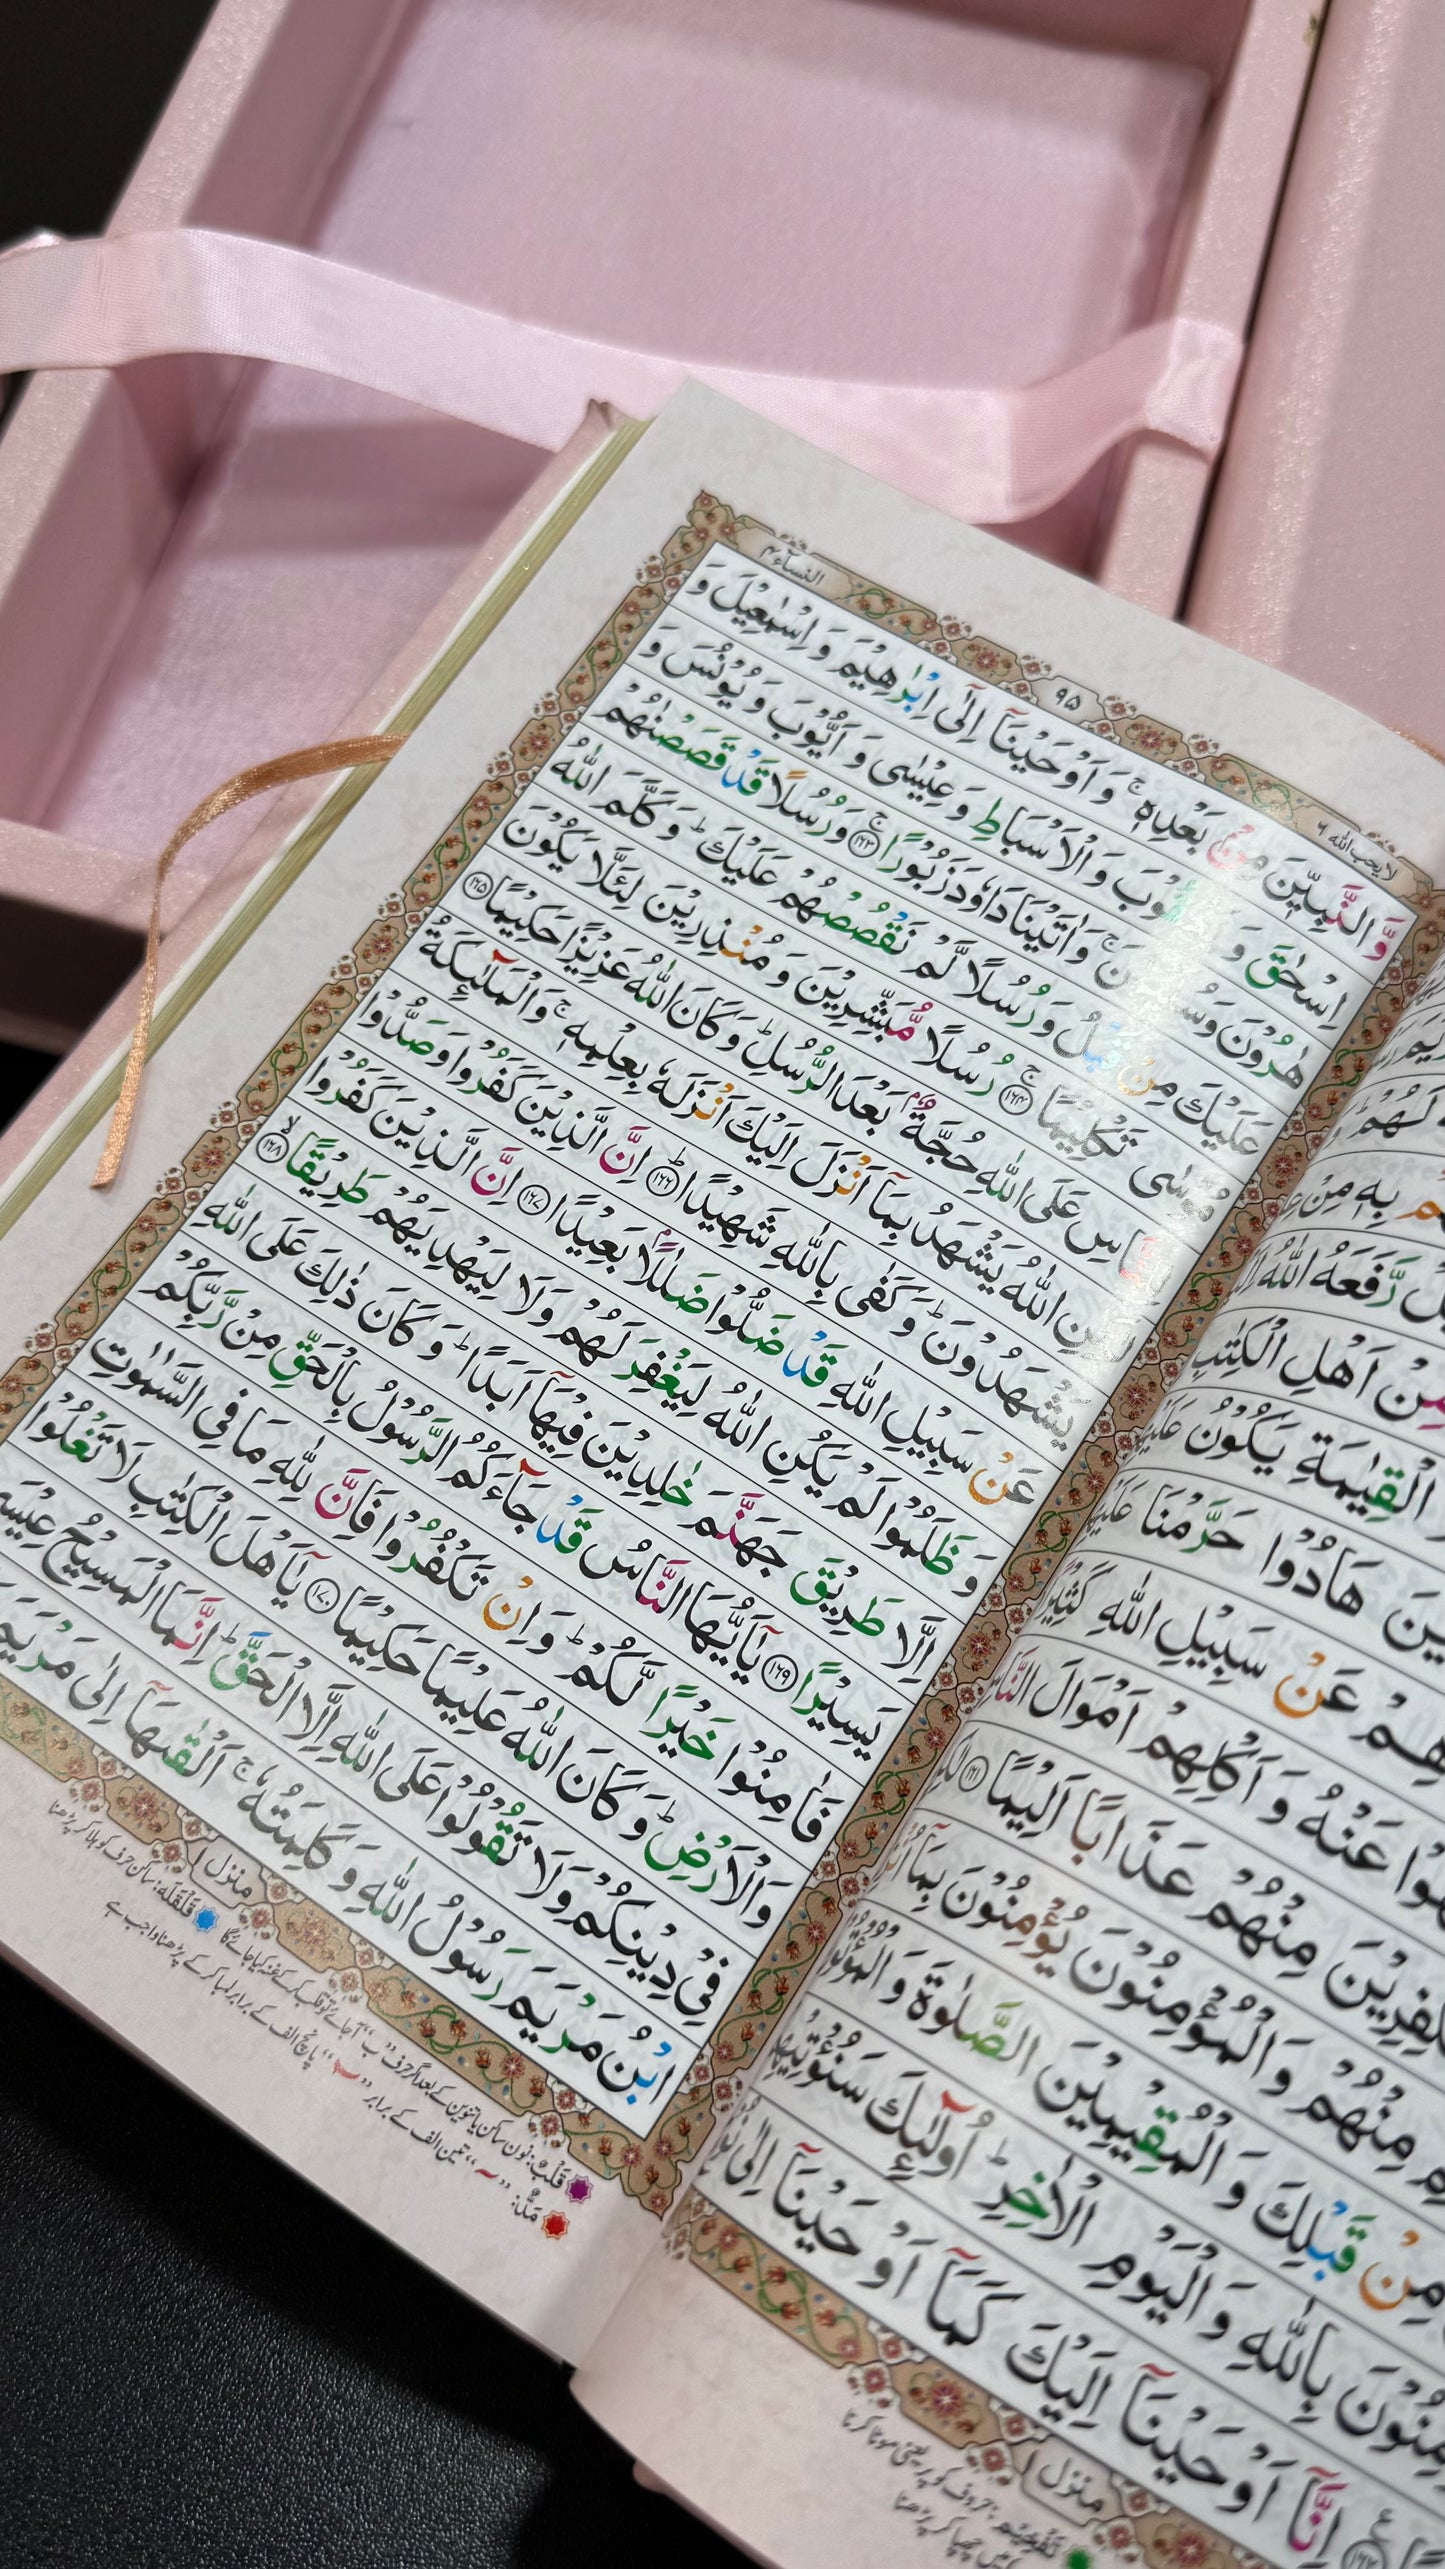 لا یحب الله ۶
۹۵
النسآء ۴
وَّالنَّبِيّٖنَ مِنْۢ بَعْدِهٖ ۚ وَ اَوْحَيْنَاۤ اِلٰۤى اِبْرٰهِيْمَ وَ اِسْمٰعِيْلَ وَ
اِسْحٰقَ وَ وَ الْاَسْبَاطِ وَ عِيْسٰى وَ اَيُّوْبَ وَ يُوْنُسَ وَ
هٰرُوْنَ ۚ وَ اٰتَيْنَا دَاوٗدَ زَبُوْرًا ۚ ۱۶۳ وَ رُسُلًا قَدْ قَصَصْنٰهُمْ
عَلَيْكَ مِنْ قَبْلُ وَ رُسُلًا لَّمْ نَقْصُصْهُمْ عَلَيْكَ ؕ وَ كَلَّمَ اللّٰهُ
مُوْسٰى تَكْلِيْمًا ۚ ۱۶۴ رُسُلًا مُّبَشِّرِيْنَ وَ مُنْذِرِيْنَ لِئَلَّا يَكُوْنَ
لِلنَّاسِ عَلَى اللّٰهِ حُجَّةٌۢ بَعْدَ الرُّسُلِ ؕ وَ كَانَ اللّٰهُ عَزِيْزًا حَكِيْمًا ۱۶۵
لٰكِنِ اللّٰهُ يَشْهَدُ بِمَاۤ اَنْزَلَ اِلَيْكَ اَنْزَلَهٗ بِعِلْمِهٖ ۚ وَ الْمَلٰٓىِٕكَةُ
يَشْهَدُوْنَ ؕ وَ كَفٰى بِاللّٰهِ شَهِيْدًا ؕ ۱۶۶ اِنَّ الَّذِيْنَ كَفَرُوْا وَ صَدُّوْا
عَنْ سَبِيْلِ اللّٰهِ قَدْ ضَلُّوْا ضَلٰلًۢا بَعِيْدًا ۱۶۷ اِنَّ الَّذِيْنَ كَفَرُوْا
وَ ظَلَمُوْا لَمْ يَكُنِ اللّٰهُ لِيَغْفِرَ لَهُمْ وَ لَا لِيَهْدِيَهُمْ طَرِيْقًا ۙ ۱۶۸
اِلَّا طَرِيْقَ جَهَنَّمَ خٰلِدِيْنَ فِيْهَاۤ اَبَدًا ؕ وَ كَانَ ذٰلِكَ عَلَى اللّٰهِ
يَسِيْرًا ۱۶۹ يٰۤاَيُّهَا النَّاسُ قَدْ جَآءَكُمُ الرَّسُوْلُ بِالْحَقِّ مِنْ رَّبِّكُمْ
فَاٰمِنُوْا خَيْرًا لَّكُمْ ؕ وَ اِنْ تَكْفُرُوْا فَاِنَّ لِلّٰهِ مَا فِى السَّمٰوٰتِ
وَ الْاَرْضِ ؕ وَ كَانَ اللّٰهُ عَلِيْمًا حَكِيْمًا ۱۷۰ يٰۤاَهْلَ الْكِتٰبِ لَا تَغْلُوْا
فِىْ دِيْنِكُمْ وَ لَا تَقُوْلُوْا عَلَى اللّٰهِ اِلَّا الْحَقَّ ؕ اِنَّمَا الْمَسِيْحُ عِيْسَى
ابْنُ مَرْيَمَ رَسُوْلُ اللّٰهِ وَ كَلِمَتُهٗ ۚ اَلْقٰىهَاۤ اِلٰى مَرْيَمَ
منزل ۱
قَلْقَلَه: ساکن حرف کو ہلا کر پڑھنا
قَلْب: نون ساکن یا تنوین کے بعد اگر حرف "ب" آجائے تو قلب کر کے غنہ کیا جائے گا
مَدّ: "ٓ" تین الف کے برابر "ٓ" پانچ الف کے برابر لمبا کر کے پڑھنا واجب ہے
لَهُمْ
بِهٖ مِنْ
رَّفَعَهُ اللّٰهُ
مِّنْ اَهْلِ الْكِتٰبِ
الْقِيٰمَةِ يَكُوْنُ
هَادُوْا حَرَّمْنَا
عَنْ سَبِيْلِ اللّٰهِ كَثِيْرًا
عَنْهُ وَ اَكْلِهِمْ اَمْوَالَ النَّاسِ
مِنْهُمْ عَذَابًا اَلِيْمًا ۱۶۱
مِنْهُمْ وَ الْمُؤْمِنُوْنَ يُؤْمِنُوْنَ بِمَاۤ
مِنْ قَبْلِكَ وَ الْمُقِيْمِيْنَ الصَّلٰوةَ وَ
بِاللّٰهِ وَ الْيَوْمِ الْاٰخِرِ ؕ اُولٰٓىِٕكَ سَنُؤْتِيْهِمْ
اِنَّاۤ اَوْحَيْنَاۤ اِلَيْكَ كَمَاۤ اَوْحَيْنَاۤ اِلٰى
منزل